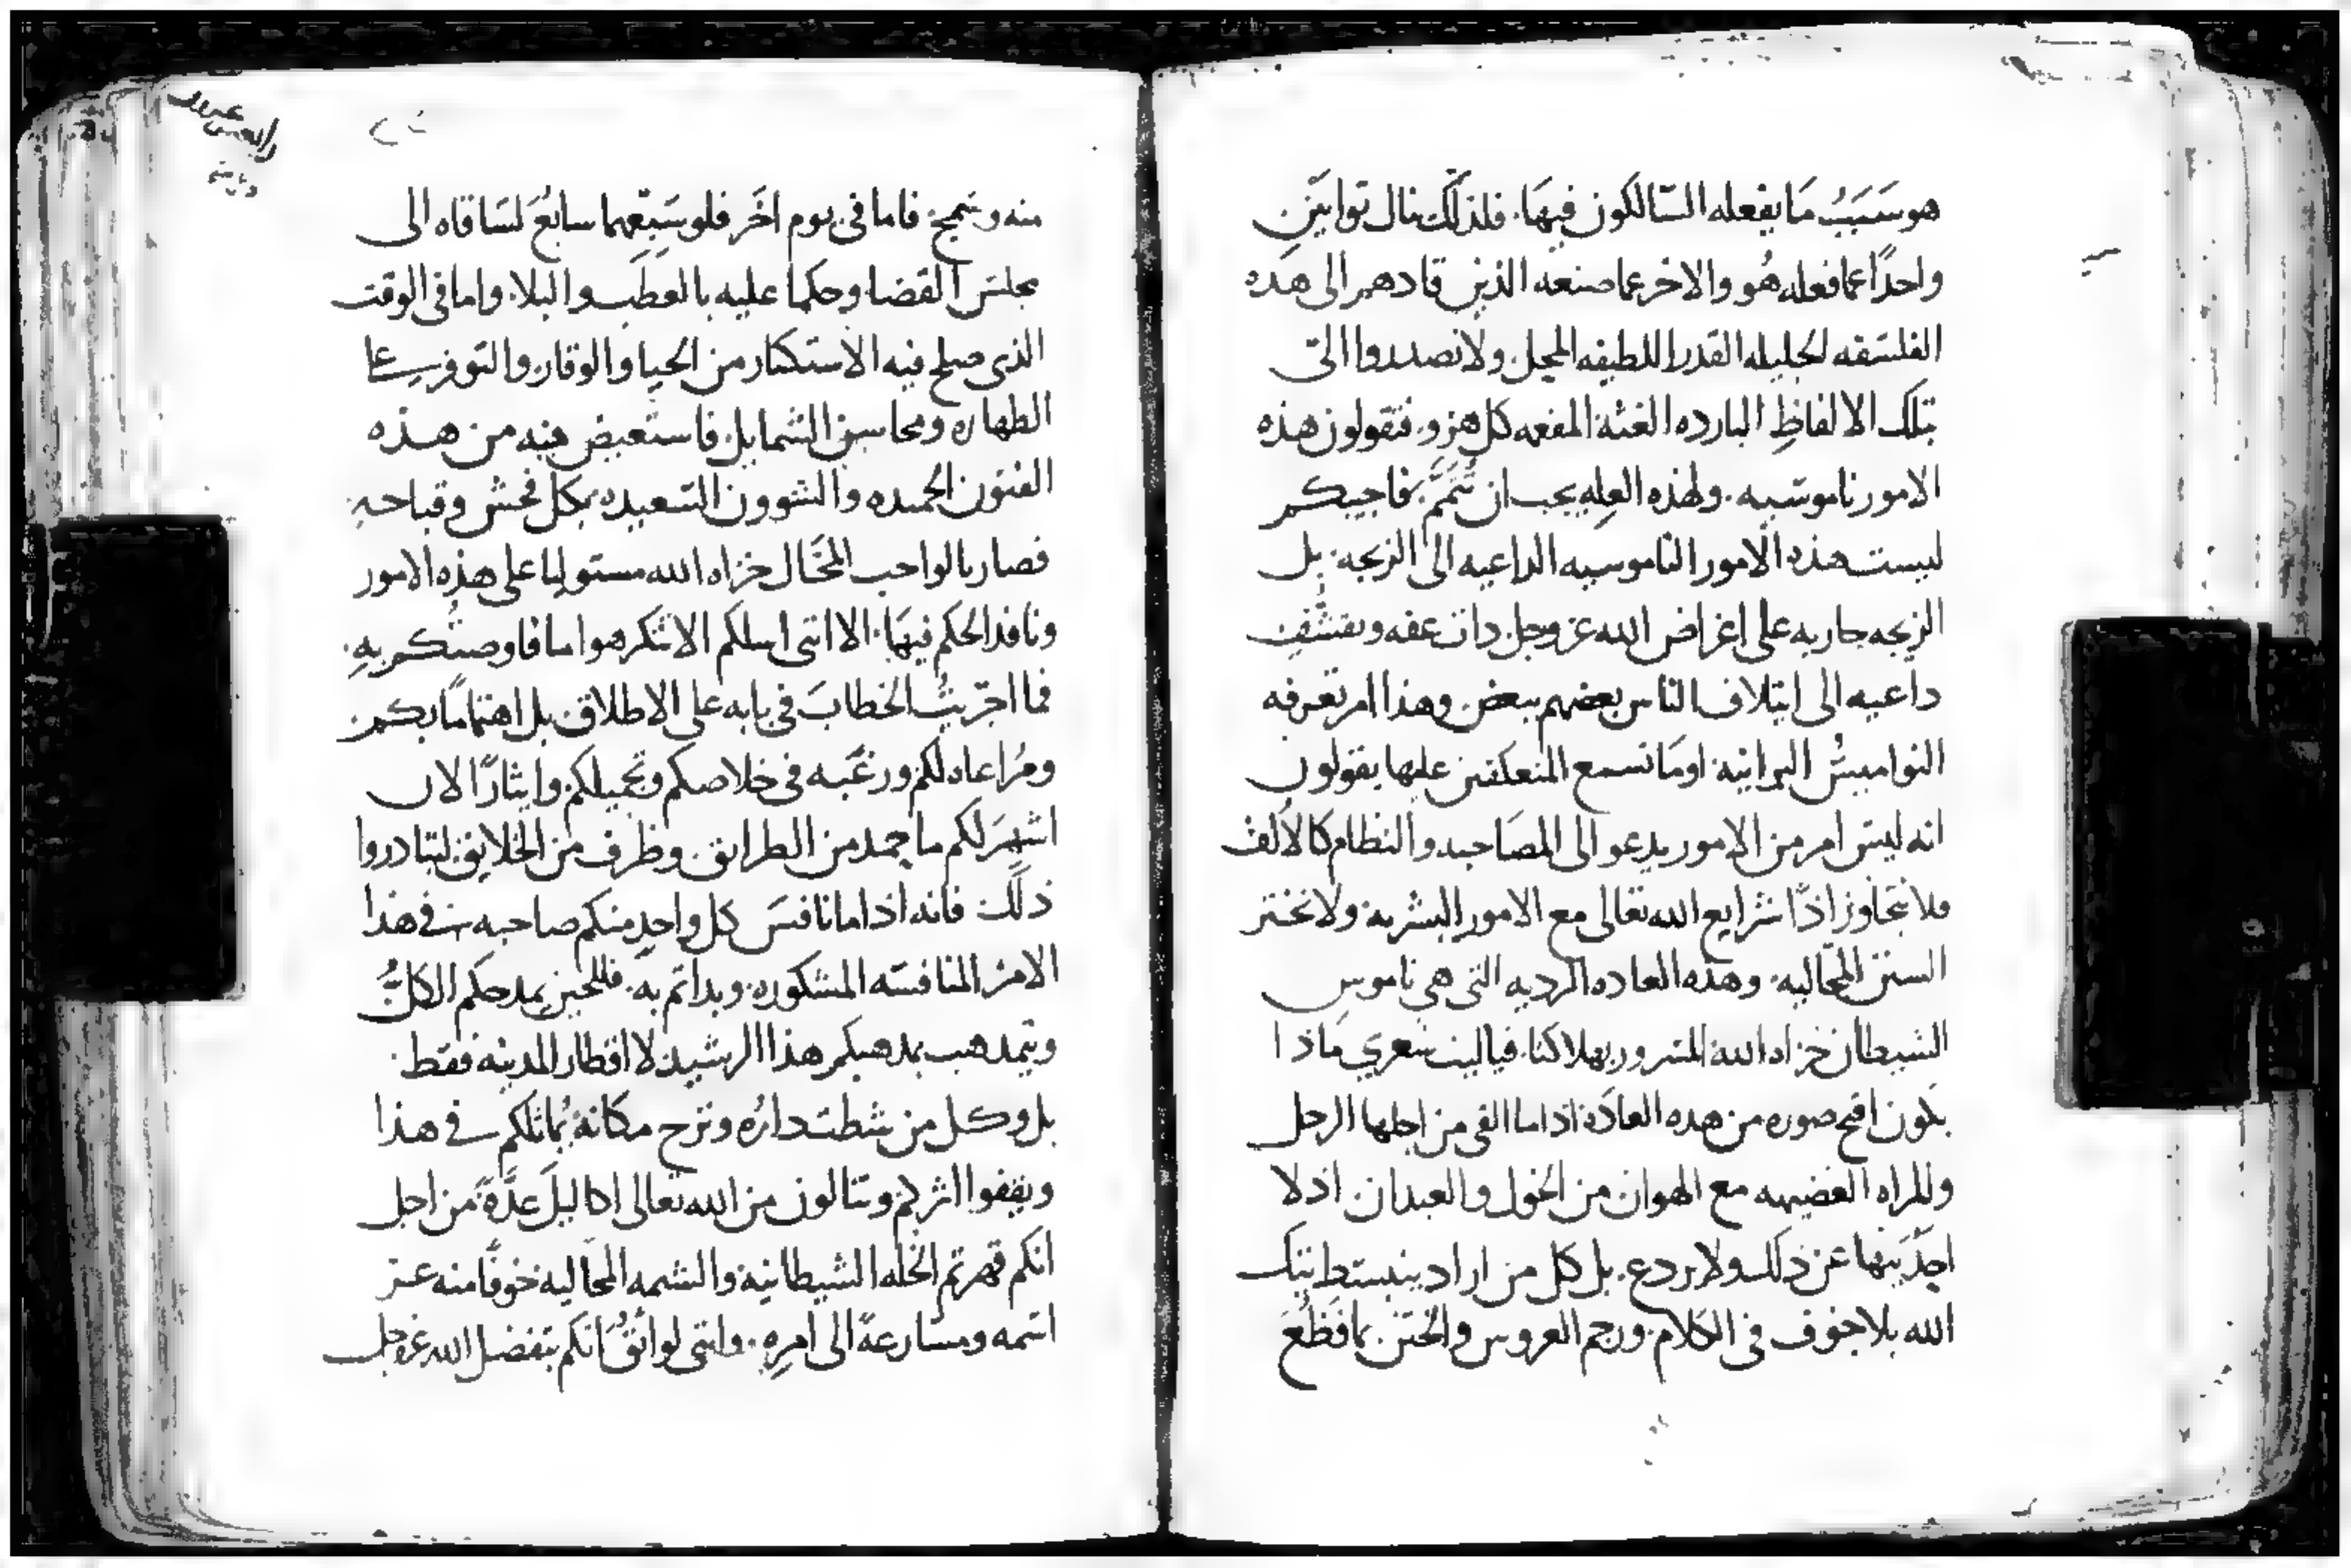 هو سَبَبُ مَا يفعله السّالكون فيهَا. فلذلك نال توابَين
واحدًا عما فعله هُو والاخر عما صنعه الذين قادهم الى هذه
الفلسَفه الجليله القدر اللطيفه المحل. ولا تصدروا الىّ
بتلك الالفاظِ البارده الغثه المفعمه كل هزو. فتقولون هذه
الامور ناموسّيه. ولهذه العِله يجب ان تُتَمَّ. فاجيبكم
ليست هذه الامور الناموسيه الداعيه الى الزيجه. بل
الزيجه جاريه على اغراض الله عز وجل ذات عفه وتقشّفِ
داعيه الى ايتلاف الناس بعضهم ببعض. وهذا امر تعرفه
النواميسُ البرانيه. اومَا تسمع المنعكفين عليها يقولون
انه ليس امر من الامور يدعو الى المصَاحبه والنظام كالاُلفه
فلا نتجَاوز اذًا شرايع الله تعالى مع الامور البشريه ولا نختر
السنن المحَاليه. وهذه العاده الرديه التى هى ناموس
الشيطان خزاه الله المسَرور بهلاكنا. فياليت شعري مَاذا
يكون اقبح صوره من هذه العادَة اذا ما القى من اجلها الرجل
وللمراه الفضيهه مع الهوان من الخول والعبدان. اذ لا
احدَ ينهَا عن ذلك ولا يردع. بل كل من اراد ينبسَط بتيك
الله بلا خوف فى الكلام. ورجم العروس والختن. بما فَظُعَ
منه وسَمج. فاما فى يوم اخَر فلو سَبّعهما سابعُ لسَاقاه الى
مجلسَ القضا وحكما عليه بالعطَب والبلا. واما فى الوقت
الذى صلح فيه الاستكثار من الحيا والوقار. والتوفر على
الطهاره ومحاسن الشمايل. فاستعيض فيه من هذه
الفنون الحميده والشوون السَعيده بكل فحش وقباحه
فصار بالواجب المحَال خزاه الله مستوليا على هذه الامور
ونافذ الحكم فيهَا. الا انى اسلكم الا تكرهوا ما فاوضتُكم بهِ.
فما اجريتُ الخطابَ فى بابه على الاطلاق. بل اهتمامًا بكم
ومُراعاه لكم ورغَبه فى خلاصكم وتجميلكم. وايثارًا لان
اشهرَ لكم ما حمد من الطرائق. وظرف من الخلايق. لتبادروا
ذلك. فانه اذا ما نافسَ كل واحدٍ منكم صاحبه فى هذا
الامر المنافسَه المشكوره. وبداتم به. فللحين يمدحكم الكلُّ
ويتمذهب بمذهبكم هذا الرشيد. لا اقطار المدينه فقط.
بل وكل من شطت دارُه ونزح مكانه يُماثلكم فى هذا
ويقفوا اثركم وتنالون من الله تعالى اكاليلَ عدَّة. من اجل
انكم قهرتم الخله الشيطانيه والشمه المحَاليه خوفًا منه عز
اسمه ومسارعةً الى امرِهِ. وانى لواثقُ انكم بتفضل الله عز وجل